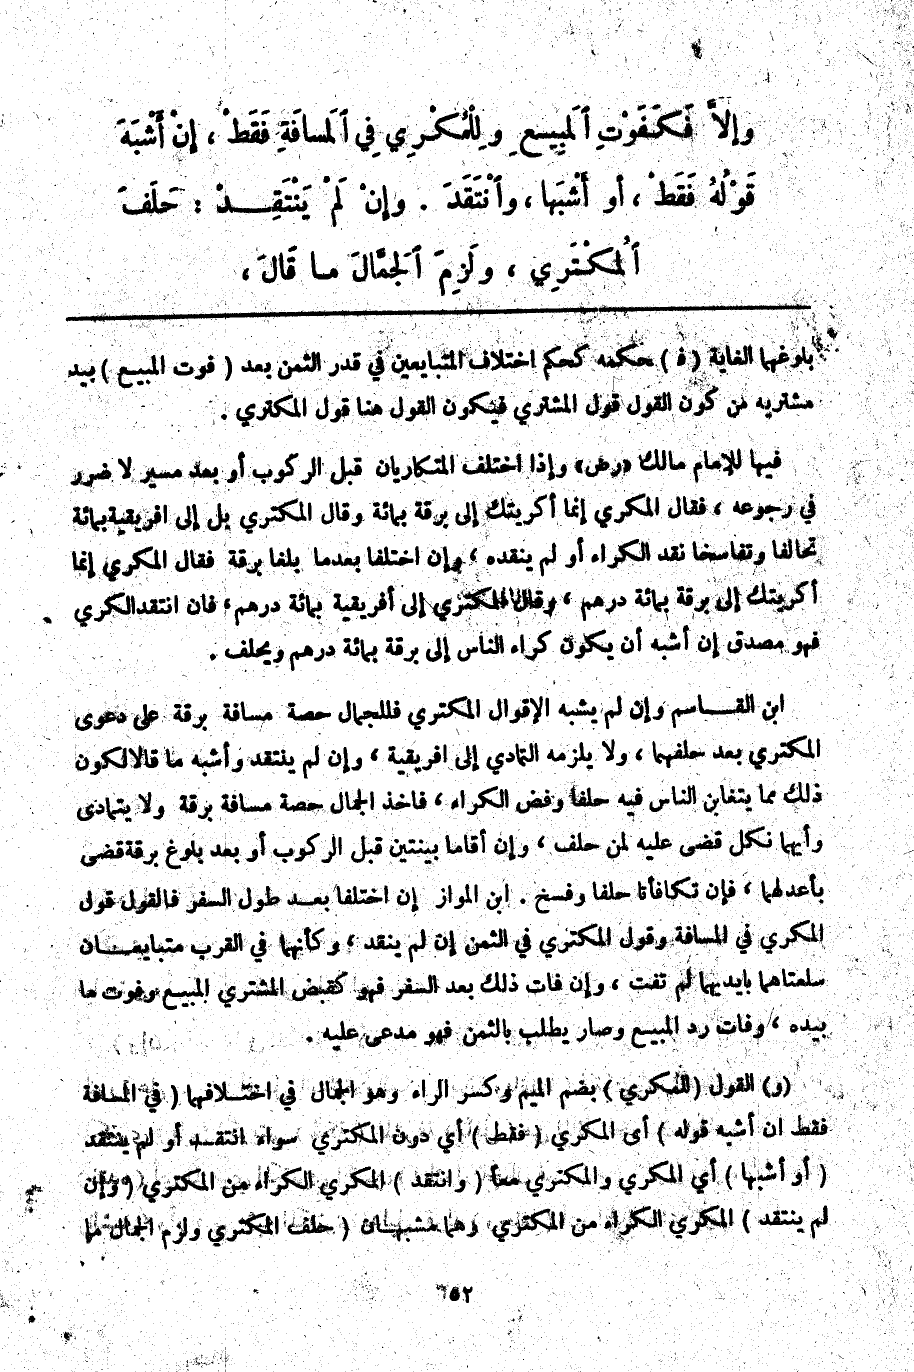 وإلاَّ فَكَفَوْتِ ٱلمَبِيعِ وَلِلْمُكْرِي فِي ٱلمَسافَةِ فَقَطْ ، إِنْ أَشْبَهَ
قَوْلُهُ فَقَطْ ، أو أَشْبَها ، وٱنْتَقَدَ . وإِنْ لَمْ يَنْتَقِدْ : حَلَفَ
ٱلمُكْتَرِي ، ولَزِمَ ٱلجَمَّالَ ما قَالَ ،
بلوغها الغاية ( ف ) حكمه كحكم اختلاف المتبايعين في قدر الثمن بعد ( فوت المبيع ) بيد
مشتريه من كون القول قول المشتري فيكون القول هنا قول المكتري .
فيها للإمام مالك «رض» وإذا اختلف المتكاريان قبل الركوب أو بعد مسير لا ضرر
في رجوعه ، فقال المكري إنما أكريتك إلى برقة بمائة وقال المكتري بل إلى افريقية بمائة
تحالفا وتفاسخا نقد الكراء أو لم ينقده ، وإن اختلفا بعدما بلغا برقة فقال المكري إنما
أكريتك إلى برقة بمائة درهم ، وقال المكتري إلى أفريقية بمائة درهم ، فان انتقد الكري
فهو مصدق إن أشبه أن يكون كراء الناس إلى برقة بمائة درهم ويحلف .
ابن القاسم وإن لم يشبه الإقوال المكتري فللجمال حصة مسافة برقة على دعوى
المكتري بعد حلفهما ، ولا يلزمه التمادي إلى افريقية ، وإن لم ينتقد وأشبه ما قالا لكون
ذلك مما يتغابن الناس فيه حلفا وفض الكراء ، فاخذ الجمال حصة مسافة برقة ولا يتمادى
وأيهما نكل قضى عليه لمن حلف ، وإن أقاما بينتين قبل الركوب أو بعد بلوغ برقة قضى
بأعدلهما ، فإن تكافأتا حلفا وفسخ . ابن المواز إن اختلفا بعد طول السفر فالقول قول
المكري في المسافة وقول المكتري في الثمن إن لم ينقد ، وكأنهما في القرب متبايعان
سلعتاهما بايديهما لم تفت ، وإن فات ذلك بعد السفر فهو كقبض المشتري المبيع وفوت ما
بيده ، وفات رد المبيع وصار يطلب بالثمن فهو مدعى عليه .
(و) القول ( للمكري ) بضم الميم وكسر الراء وهو الجمال في اختلافهما ( في المسافة
فقط ان أشبه قوله ) أى المكري ( فقط ) أي دون المكتري سواء انتقد أو لم ينتقد
( أو أشبها ) أي المكري والمكتري معاً ( وانتقد ) المكري الكراء من المكتري ( وإن
لم ينتقد ) المكري الكراء من المكتري وهما مشبهان ( حلف المكتري ولزم الجمال ما